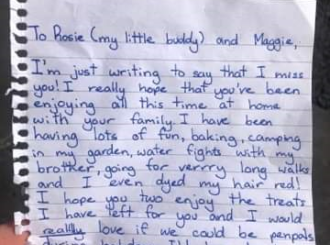 To Rosie (my little buddy) and Maggie,
I'm just writing to say that I miss
you! I really hope that you've been
enjoying all this time at home
with your family. I have been
having lots of fun, baking, camping
in my garden, water fights with my
brother, going for verrry long walks
and I even dyed my hair red!
I hope you two enjoy the treats
I have left for you and I would
really love if we could be penpals